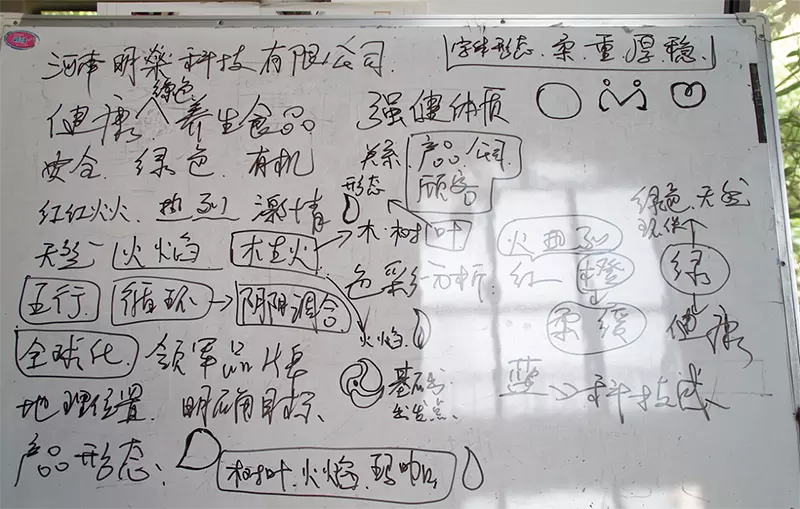 河南明燊科技有限公司.
字体形态、柔、重、厚、稳.
绿色
健康 养生食品
强健体质
安全. 绿色. 有机
关系. 产品 公司
顾客
红红火火. 热烈 激情
形态
木·树叶
天然 火焰. 木生火
火热烈
绿色、天然
环保
色彩分析: 红— 橙
绿
五行. 循环→阴阳调合
火焰.
柔 续
健康
全球化. 领军品牌
基础与
出发点.
蓝 科技感
地理位置. 明确目标、
产品形态:
树叶、火焰、玛咖